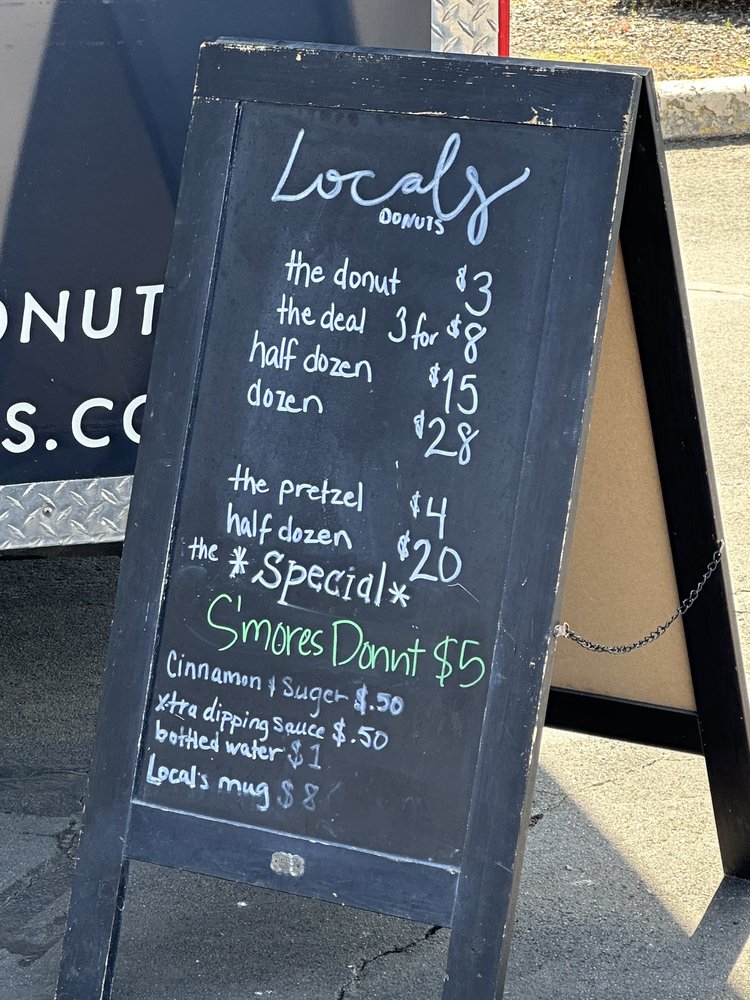 Locals
DONUTS
the donut $3
the deal 3 for $8
half dozen $15
dozen $28
the pretzel $4
half dozen $20
the *Special*
S'mores Donut $5
Cinnamon & Suger $.50
xtra dipping sauce $.50
bottled water $1
Local's mug $8
ONUT
S.CO